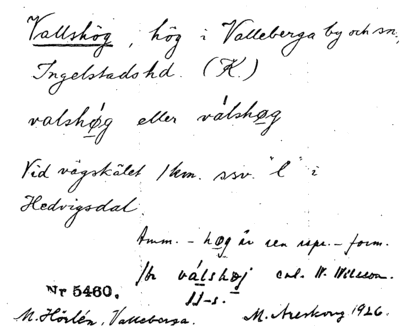 Vallshög, hög i Valleberga by och sn,
Ingelstads hd. (K.)
valshǿ̱g eller vá̱lshø̱g
Vid vägskälet 1 km. ssv. "l" i
Hedvigsdal.
Anm. – hø̱g är ren rspr. – form.
för vá̱lshø̱j enl. N. Nilsson.
Nr 5460.
M. Hörlén, Valleberga. M. Areskoug 1926.